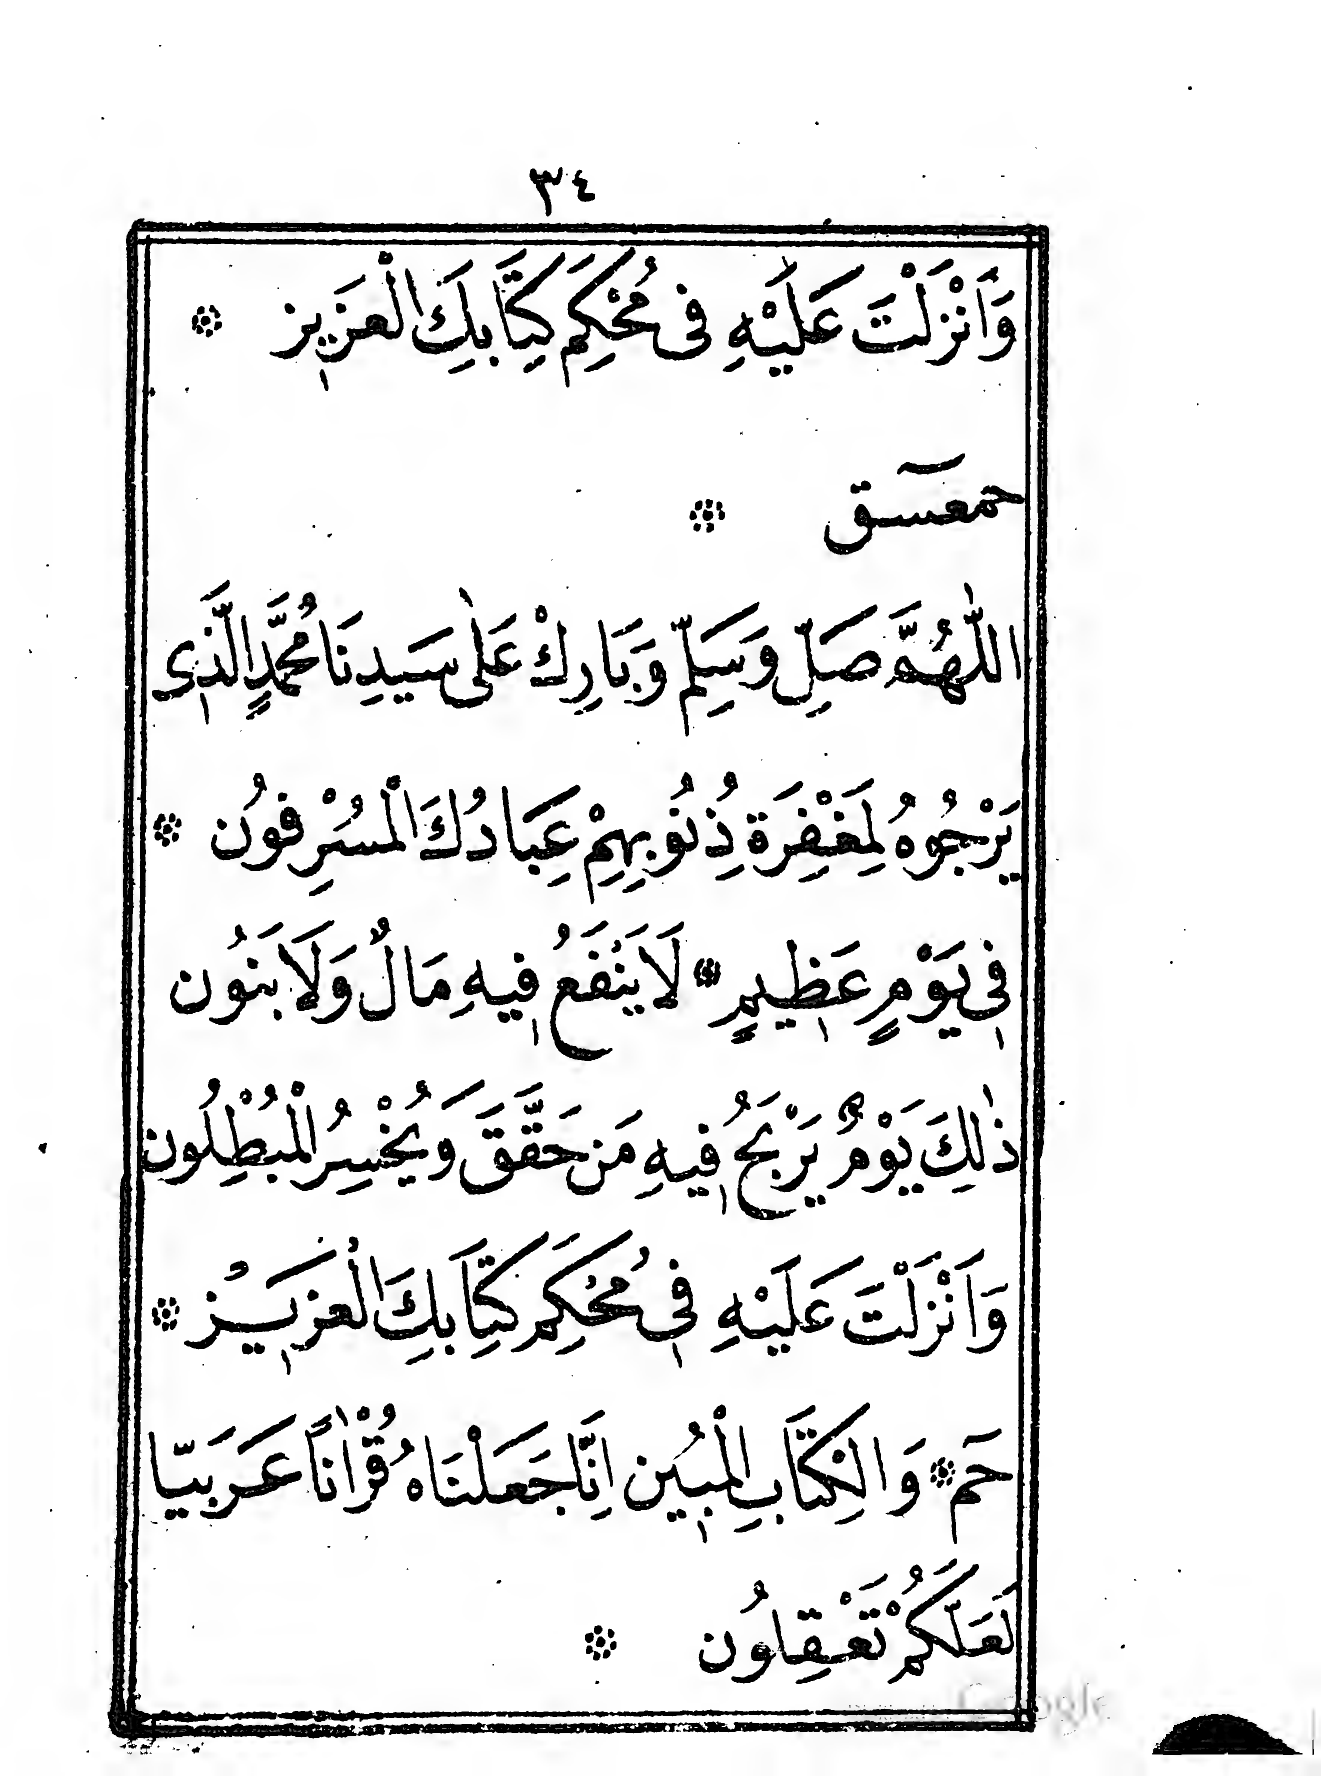 ٣٤
وَاَنْزَلْتَ عَلَيْهِ فى مُحْكَمِ كِتَابِكَ الْعَزِيز ۞
حمعسق ۞
اللّٰهُمَّ صَلِّ وَسَلِّمْ وَبَارِكْ عَلٰى سَيِدِنَا مُحَمَّدٍ الَّذى
يَرْجُوهُ لِمَغْفِرَة ذُنُوبِهِمْ عِبَادُكَ الْمُسْرِفُون ۞
فى يَوْمٍ عَظِيمٍ ۞ لَا يَنْفَعُ فِيهِ مَالٌ وَلَا بَنُون
ذٰلِكَ يَوْمٌ يَرْبَحُ فِيهِ مَن حَقَّقَ وَيُخْسِرُ الْمُبْطِلُون
وَاَنْزَلْتَ عَلَيْهِ فى مُحْكَمِ كِتَابِكَ الْعَزِيز ۞
حٓم ۞ وَالْكِتَابِ الْمُبِين اِنَّا جَعَلْنَاهُ قُرْاٰنًا عَرَبيّا
لَعَلَّكُمْ تَعْقِلُون ۞
Google